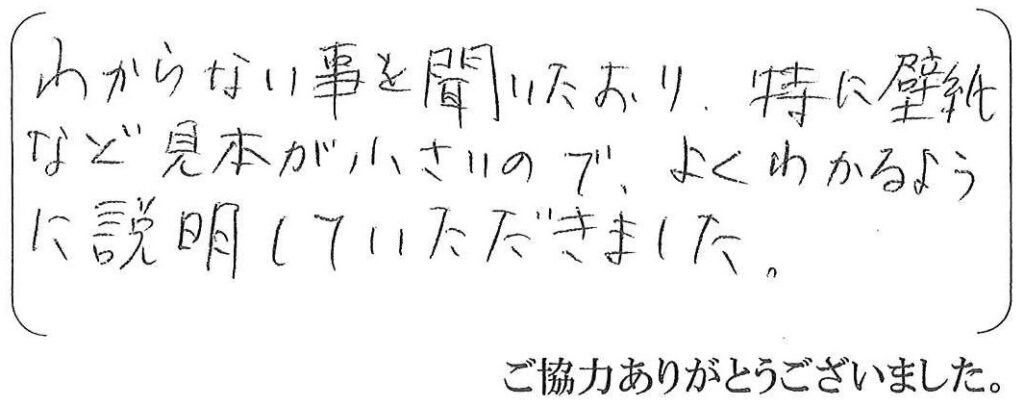 わからない事を聞いたおり、特に壁紙
など見本が小さいので、よくわかるよう
に説明していただきました。
ご協力ありがとうございました。